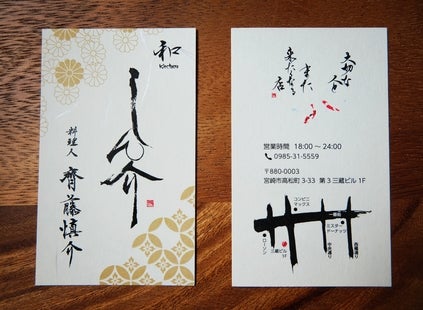 和
Kitchen
しん介
料理人 齊藤慎介
大切な
人と
また
来たくなる
店
営業時間 18:00 ~ 24:00
0985-31-5559
〒880-0003
宮崎市高松町 3-33 第3三蔵ビル 1F
コンビニ
マックス
ミスター
ドーナッツ
ローソン
三蔵ビル
1F
中央通り